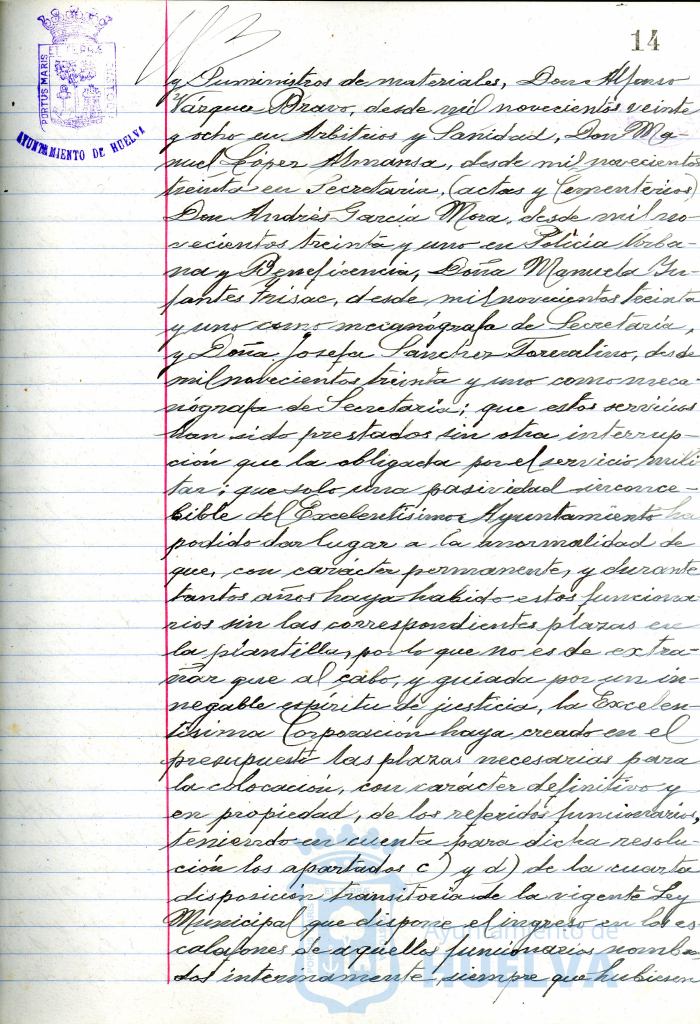 14
PORTUS MARIS
AYUNTAMIENTO DE HUELVA
y Suministros de materiales, Don Alfonso
Vázquez Bravo, desde mil novecientos veinte
y ocho en Arbitrios y Sanidad, Don Ma-
nuel López Almansa, desde mil novecientos
treinta en Secretaría, (actas y Cementerios)
Don Andrés García Mora, desde mil no-
vecientos treinta y uno en Policía Urba-
na y Beneficencia, Doña Manuela In-
fantes Frisac, desde mil novecientos treinta
y uno como mecanógrafa de Secretaría,
y Doña Josefa Sánchez, desde
mil novecientos treinta y uno como meca
nógrafa de Secretaría; que estos servicios
han sido prestados sin otra interrup-
ción que la obligada por el servicio mili
tar; que solo una pasividad inconce-
bible del Excelentísimo Ayuntamiento ha
podido dar lugar a la anormalidad de
que, con carácter permanente, y durante
tantos años haya habido estos funciona-
rios sin las correspondientes plazas en
la plantilla, por lo que no es de extra-
ñar que al cabo, y guiada por un in-
negable espíritu de justicia, la Excelen-
tísima Corporación haya creado en el
presupuesto las plazas necesarias para
la colocación, con carácter definitivo y
en propiedad, de los referidos funcionarios,
teniendo en cuenta para dicha resolu-
ción los apartados c) y d) de la cuarta
disposición transitoria de la vigente Ley
Municipal que dispone el ingreso en los es-
calafones de aquellos funcionarios nombra-
dos interinamente, siempre que hubiesen
Ayuntamiento de
HUELVA